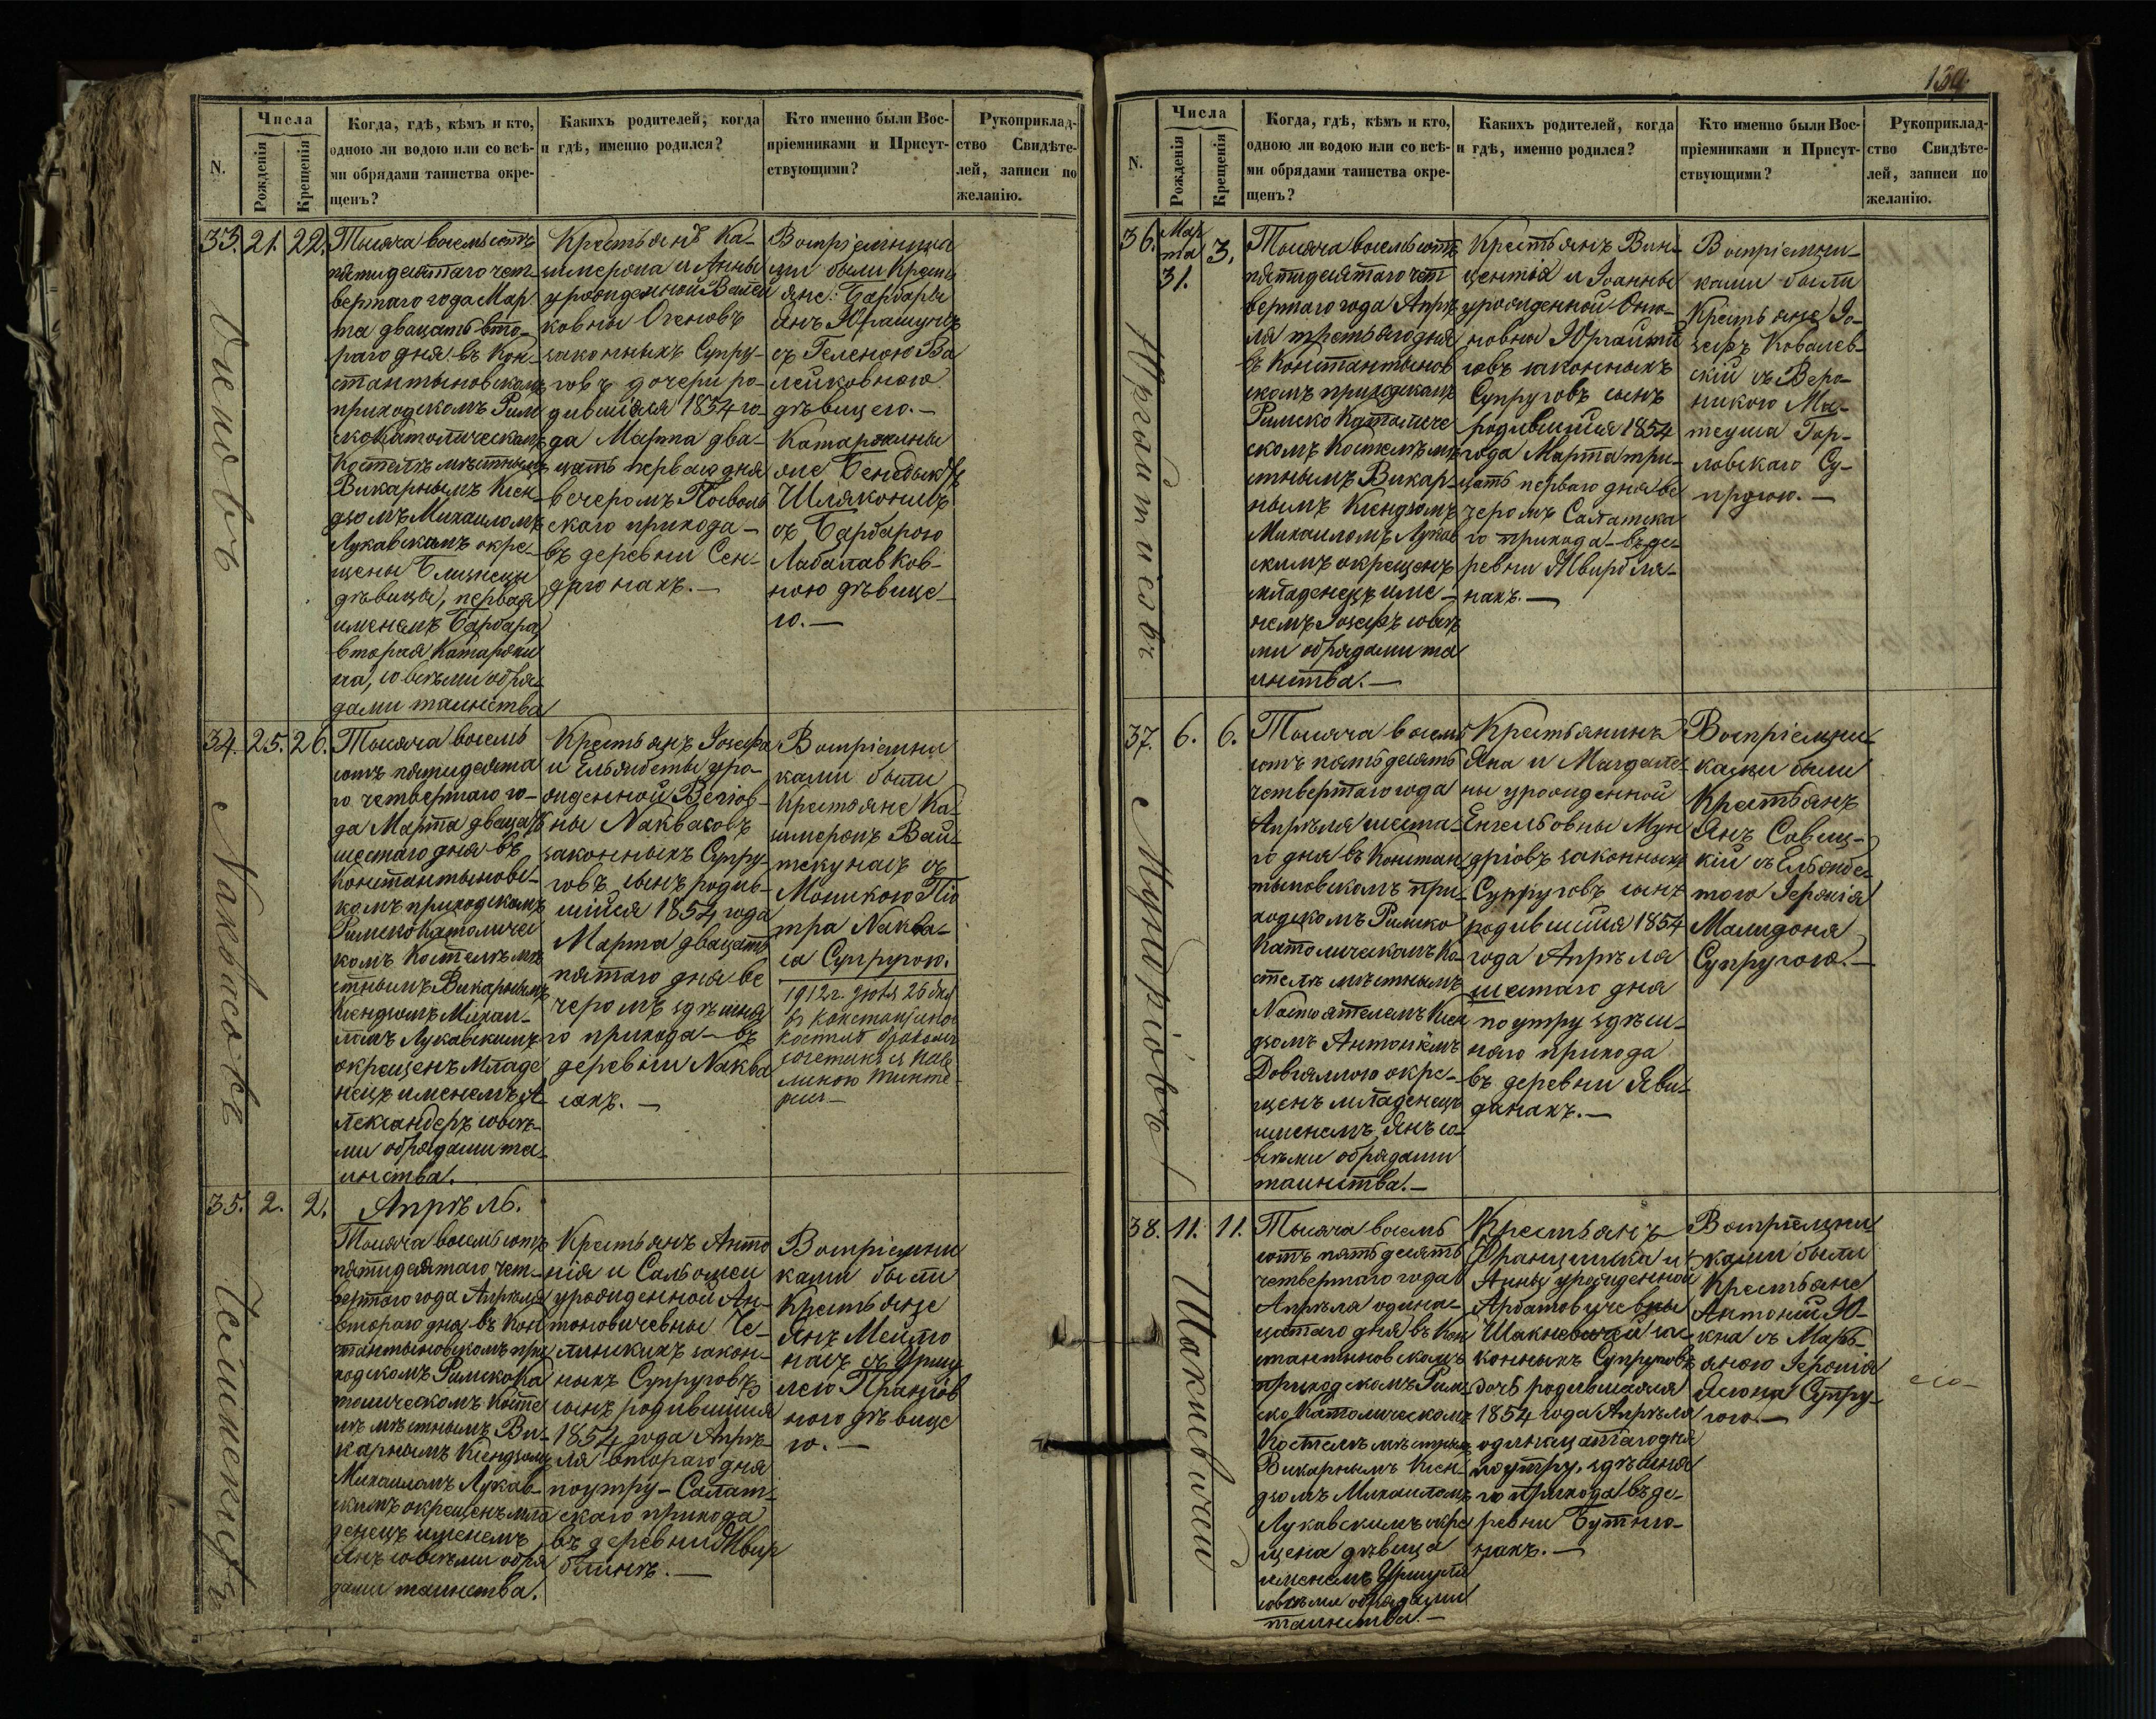 N.
Числа
Рожденія
Крещенія
Когда, гдѣ, кѣмъ и кто,
одною ли водою или со всѣ-
ми обрядами таинства окре-
щенъ?
Какихъ родителей, когда
и гдѣ, именно родился?
Кто именно были Вос-
пріемниками и Присут-
ствующими?
Рукоприклад-
ство Свидѣте-
лей, записи по
желанію.
33. 21. 22.
Тысяча восемьсотъ
пятидесятаго чет-
вертаго года Мар
та двацать вто-
раго дня въ Кон-
стантыновскомъ
приходскомъ Рим
скокатолическомъ
Костелѣ мѣстнымъ
Викарнымъ Ксен-
дзомъ Михаиломъ
Лукавскимъ окре-
щены Близнецы
дѣвицы, первая
именемъ Барбара
вторая Катаржи
на, со всѣми обря-
дами таинства
Крестьянъ Ка-
зимерона и Анны
урожденной Валей
ковны
законныхъ Супру-
говъ дочери ро-
дившіяся 1854 го-
да Марта два-
цать перваго дня
вечеромъ Посволь
скаго прихода –
въ деревни Сен-
даронахъ. –
Воспріемника
ми были Кресть
яне: Барбары
Янъ Юрашунъ
съ Геленою Ва
лейковною
дѣвицею. –
Катаржины
Бенедыктъ
Шляконисъ
съ Барбарою
Лабалавков-
ною дѣвице-
ю. –
34. 25. 26.
Наквасовъ
Тысяча восемь
сотъ пятидесята
го четвертаго го-
да Марта двацать
шестаго дня въ
Константыновс-
комъ приходскомъ
Римскокатоличес
комъ Костелѣ мѣ
стнымъ Викарнымъ
Ксендзомъ Михаи-
ломъ Лукавскимъ
окрещенъ Младе
нецъ именемъ А-
лександеръ со всѣ-
ми обрядами та-
инства.
Крестьянъ Іозефа
и Ельжбеты уро-
жденной
ны Наквасовъ
законныхъ Супру-
говъ сынъ родив-
шійся 1854 года
Марта двацать
пятаго дня ве
черомъ здѣшня
го прихода – въ
деревни Наква
сахъ. –
Воспріемни
ками были
Крестьяне Ка-
зимеронъ Вай-
текунасъ съ
Моникою Піо
тра Наква-
са Супругою.
1912 г. 26 дня
въ Константинов
костелѣ бракомъ
сочетался съ Пав
линою
35. 2. 2.
Апрѣль.
Тысяча восемьсотъ
пятидесятаго чет-
вертаго года Апрѣля
втораго дня въ Кон
стантыновскомъ при
ходскомъ Римскока
толическомъ Косте
лѣ мѣстнымъ Ви-
карнымъ Ксендзомъ
Михаиломъ Лукав-
скимъ окрещенъ мла
денецъ именемъ
Янъ со всѣми обря
дами таинства.
Крестьянъ Анто
нія и Сальомеи
урожденной Ан-
тоновичевны Че-
линскихъ закон-
ныхъ Супруговъ
сынъ родившійся
1854 года Апрѣ-
ля втораго дня
поутру – Салат-
скаго прихода
въ деревни Жвир
блинѣ. –
Воспріемни
ками были
Крестьяне
Янъ Мейто
насъ съ Уршу
лею Пранцов
ною дѣвице
ю. –
N.
Числа
Рожденія
Крещенія
Когда, гдѣ, кѣмъ и кто,
одною ли водою или со всѣ-
ми обрядами таинства окре-
щенъ?
Какихъ родителей, когда
и гдѣ, именно родился?
Кто именно были Вос-
пріемниками и Присут-
ствующими?
Рукоприклад-
ство Свидѣте-
лей, записи по
желанію.
36. Мар
та
31. 3.
Юргайтисовъ
Тысяча восемьсотъ
пятидесятаго чет
вертаго года Апрѣ
ля третьяго дня
въ Константынов
скомъ приходскомъ
Римско Католиче
скомъ Костелѣ мѣ
стнымъ Викар-
нымъ Ксендзомъ
Михаиломъ Лукав
скимъ окрещенъ
младенецъ име-
немъ Іозефъ со всѣ
ми обрядами та
инства. –
Крестьянъ Вин-
центія и Іоанны
урожденной
новны Юргайти
совъ законныхъ
Супруговъ сынъ
родившійся 1854
года Марта три-
цать перваго дня ве
черомъ Салатска
го прихода – въ де-
ревни Жвирбля-
нахъ. –
Воспріемни-
ками были
Крестьяне Іо-
зефъ Ковалев-
скій съ Веро-
никою Ма-
теуша Гор-
ловскаго Су-
пругою. –
37. 6. 6.
Мундріовъ
Тысяча восемь
сотъ пятьдесятъ
четвертаго года
Апрѣля шеста-
го дня въ Констан
тыновскомъ при-
ходскомъ Римско
Католическомъ Ко-
стелѣ мѣстнымъ
Настоятелемъ Ксен
дзомъ Антоніемъ
Довгяллою окре-
щенъ младенецъ
именемъ Янъ со
всѣми обрядами
таинства. –
Крестьянинъ
Яна и Магдале-
ны урожденной
Енгельовны Мун
дріовъ законныхъ
Супруговъ сынъ
родившійся 1854
года Апрѣля
шестаго дня
поутру здѣш-
няго прихода
въ деревни Яви-
данахъ. –
Воспріемни-
ками были
Крестьянъ
Янъ Савиц-
кій съ Ельжбе-
тою Іеронія
Малидона
Супругою. –
38. 11. 11.
Шакневичай
Тысяча восемь
сотъ пятьдесятъ
четвертаго года
Апрѣля одина-
цатаго дня въ Кон
стантыновскомъ
приходскомъ Рим
ско Католическомъ
Костелѣ мѣстнымъ
Викарнымъ Ксен-
дзомъ Михаиломъ
Лукавскимъ окре
щена дѣвица
именемъ Уршуля
со всѣми обрядами
таинства. –
Крестьянъ
Францишка и
Анны урожденной
Арбатовичевны
Шакневичей за-
конныхъ Супруговъ
дочь родившаяся
1854 года Апрѣля
одинацатаго дня
поутру, здѣшня
го прихода въ де-
ревни Бутню-
нахъ. –
Воспріемни
ками были
Крестьяне
Антоній Ю-
кна съ Марь-
яною Іеронія
Супру-
гою. –